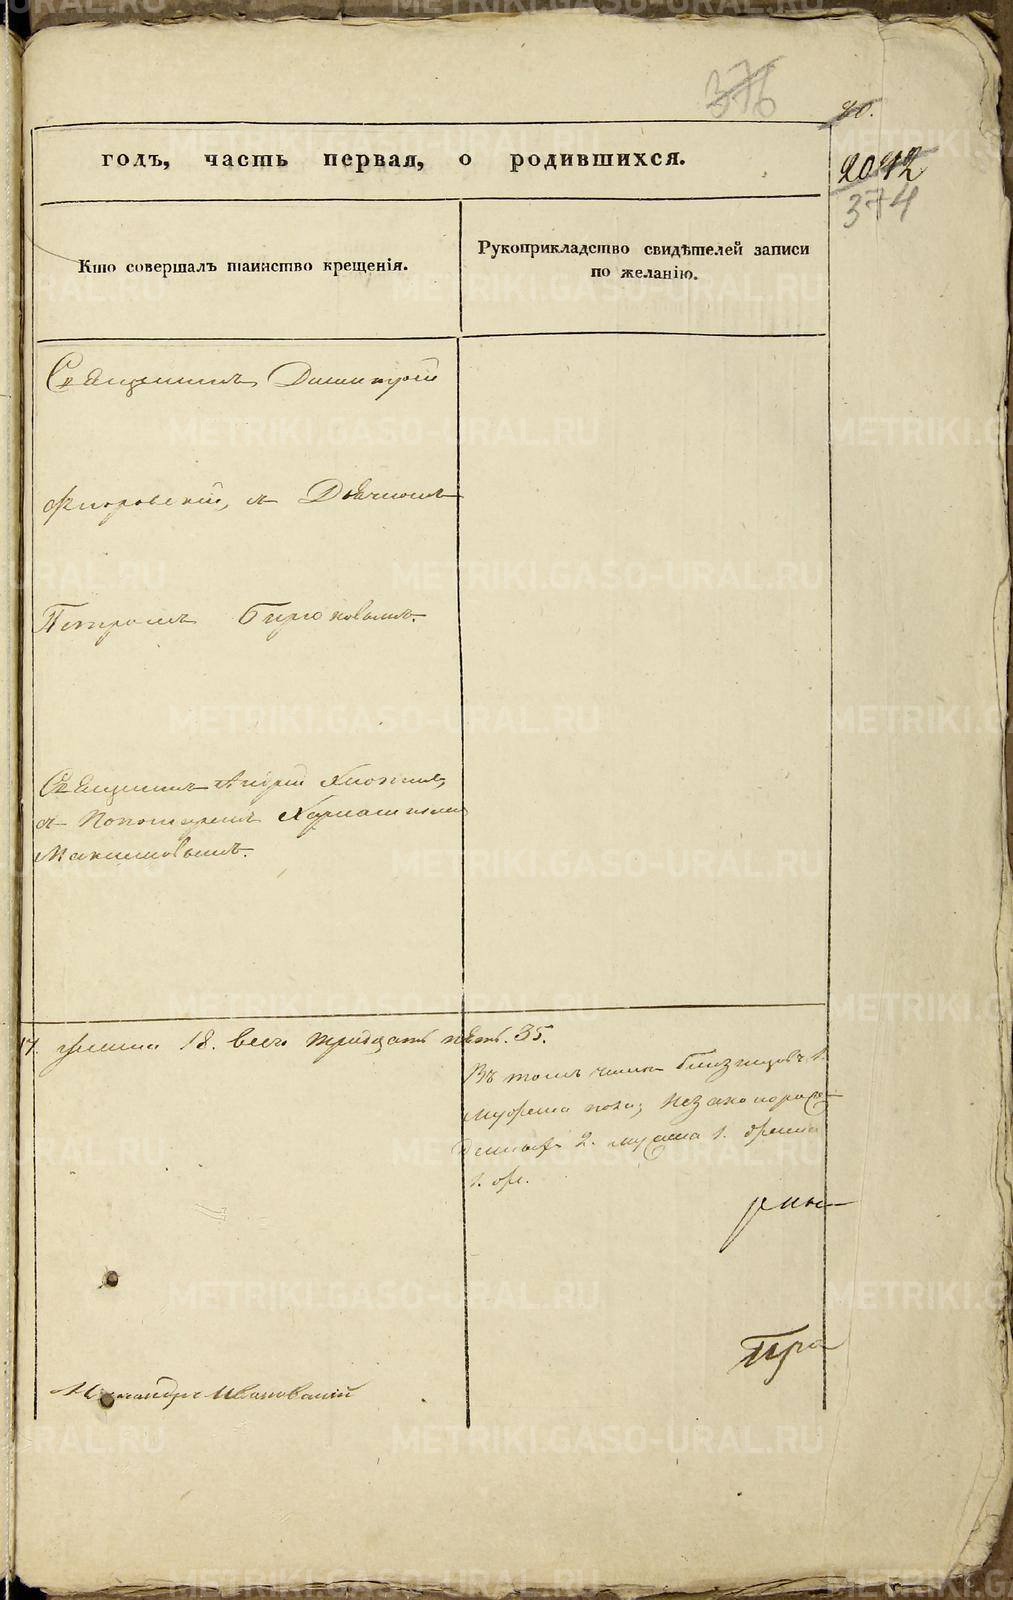 376
80.
годъ, часть первая, о родившихся.
2042
374
Кто совершалъ таинство крещенія.
Рукоприкладство свидѣтелей записи
по желанію.
Священникъ Димитрій
съ Дьячкомъ
Петромъ Бирюковымъ.
Священникъ Андрей
съ Пономаремъ
Максимовымъ.
17. женска 18. всего тридцать пять. 35.
Въ томъ числѣ близнецовъ 1.
мужеска пола; незаконорож-
денныхъ 2. мужеска 1. женска
1. же.
Ивановскій
METRIKI.GASO-URAL.RU